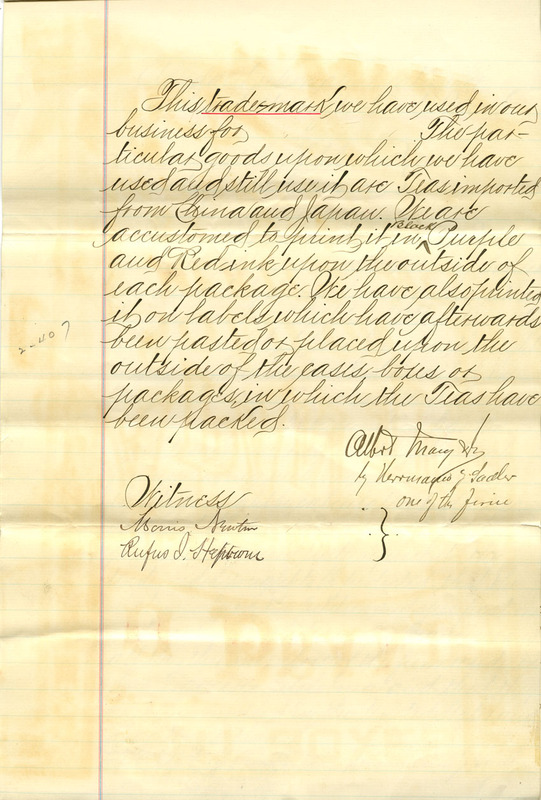 This trade-mark we have used in our
business for The par-
ticular goods upon which we have
used and still use it are Teas imported
from China and Japan. We are
black
accustomed to print it in ^ Purple
and Red ink upon the outside of
each package. We have also printed
it on labels which have afterwards
been pasted or placed upon the
outside of the cases boxes or
packages, in which the Teas have
been packed.
2-407
Albert
by Herrmann S. Sadler
one of the firm
Witness
Morris Newton
Rufus J. Hepburn